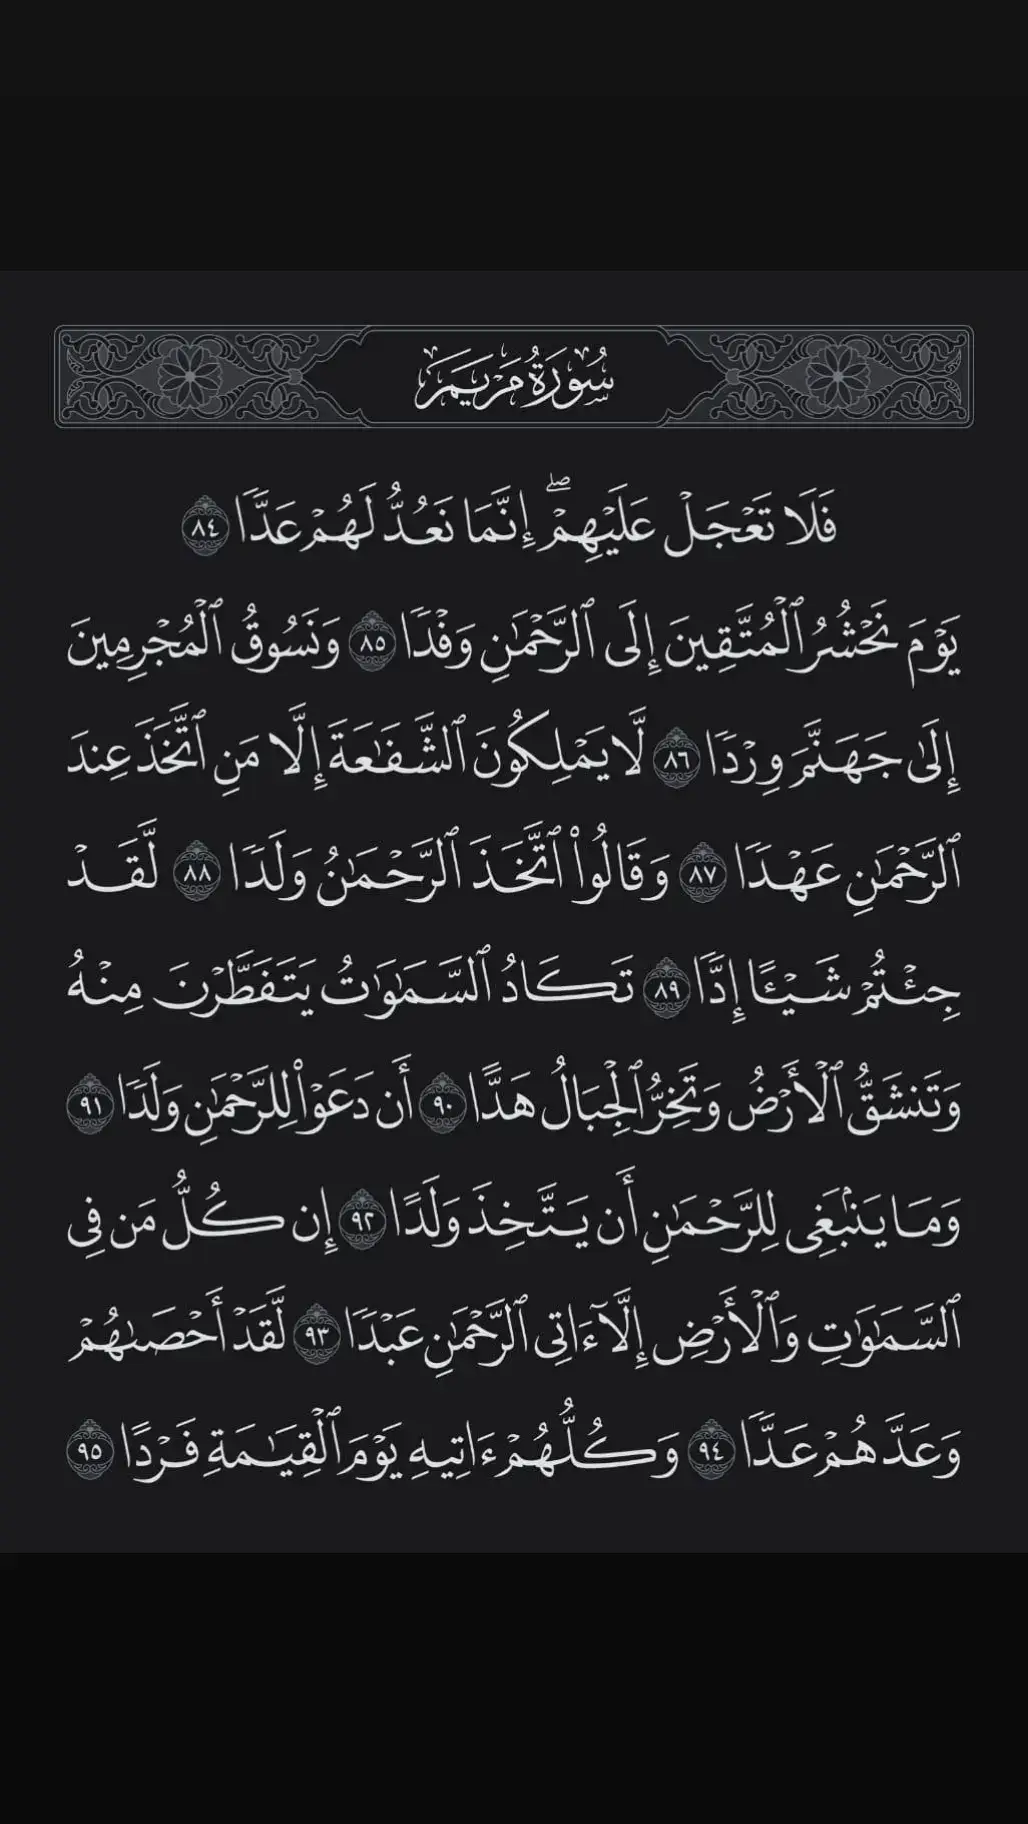 سُورَةُ مَرۡيَمَ
فَلَا تَعۡجَلۡ عَلَيۡهِمۡۖ إِنَّمَا نَعُدُّ لَهُمۡ عَدّٗا ٨٤
يَوۡمَ نَحۡشُرُ ٱلۡمُتَّقِينَ إِلَى ٱلرَّحۡمَٰنِ وَفۡدٗا ٨٥ وَنَسُوقُ ٱلۡمُجۡرِمِينَ
إِلَىٰ جَهَنَّمَ وِرۡدٗا ٨٦ لَّا يَمۡلِكُونَ ٱلشَّفَٰعَةَ إِلَّا مَنِ ٱتَّخَذَ عِندَ
ٱلرَّحۡمَٰنِ عَهۡدٗا ٨٧ وَقَالُواْ ٱتَّخَذَ ٱلرَّحۡمَٰنُ وَلَدٗا ٨٨ لَّقَدۡ
جِئۡتُمۡ شَيۡـًٔا إِدّٗا ٨٩ تَكَادُ ٱلسَّمَٰوَٰتُ يَتَفَطَّرۡنَ مِنۡهُ
وَتَنشَقُّ ٱلۡأَرۡضُ وَتَخِرُّ ٱلۡجِبَالُ هَدًّا ٩٠ أَن دَعَوۡاْ لِلرَّحۡمَٰنِ وَلَدٗا ٩١
وَمَا يَنۢبَغِي لِلرَّحۡمَٰنِ أَن يَتَّخِذَ وَلَدًا ٩٢ إِن كُلُّ مَن فِي
ٱلسَّمَٰوَٰتِ وَٱلۡأَرۡضِ إِلَّآ ءَاتِي ٱلرَّحۡمَٰنِ عَبۡدٗا ٩٣ لَّقَدۡ أَحۡصَىٰهُمۡ
وَعَدَّهُمۡ عَدّٗا ٩٤ وَكُلُّهُمۡ ءَاتِيهِ يَوۡمَ ٱلۡقِيَٰمَةِ فَرۡدًا ٩٥